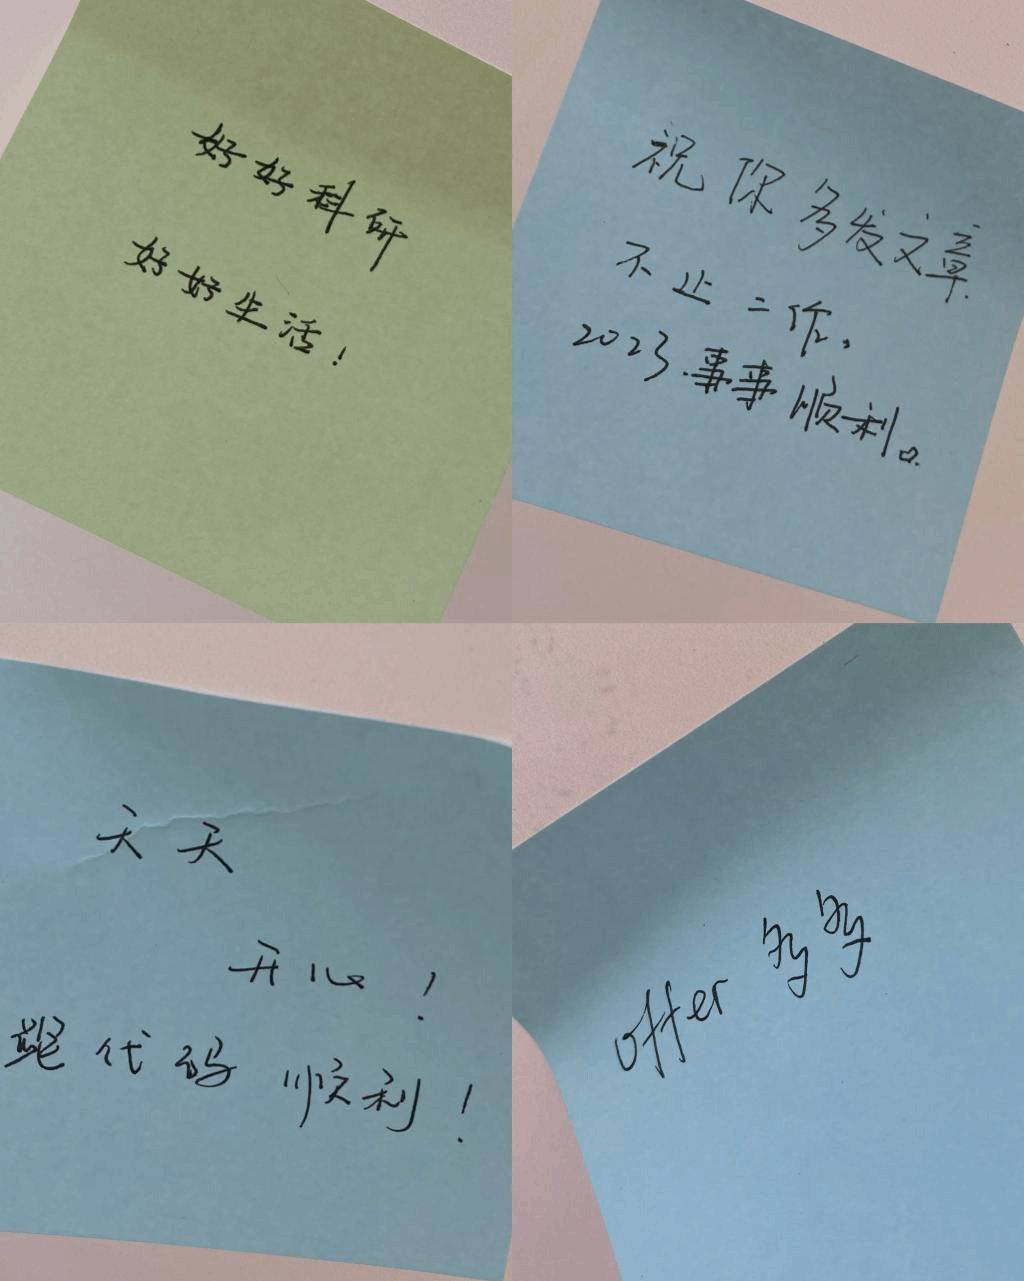 好好科研
好好生活！
祝你多发文章
不止二作,
2023.事事顺利。
天天
开心！
代码顺利！
offer 多多